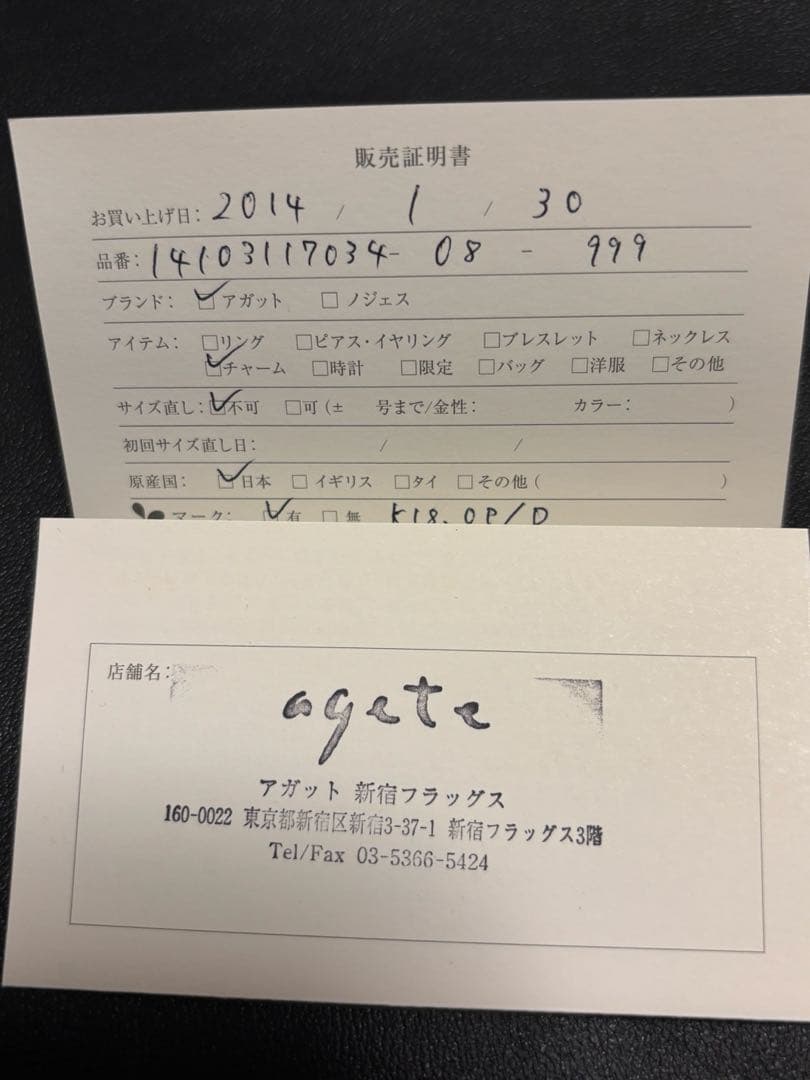 販売証明書
お買い上げ日: 2014 / 1 / 30
品番: 14103117034- 08 - 999
ブランド: ☑アガット □ノジェス
アイテム: □リング □ピアス・イヤリング □ブレスレット □ネックレス
☑チャーム □時計 □限定 □バッグ □洋服 □その他
サイズ直し: ☑不可 □可(± 号まで/金性: カラー: )
初回サイズ直し日: / /
原産国: ☑日本 □イギリス □タイ □その他( )
マーク: ☑有 □無 K18.OP/D
店舗名:
agete
アガット 新宿フラッグス
160-0022 東京都新宿区新宿3-37-1 新宿フラッグス3階
Tel/Fax 03-5366-5424